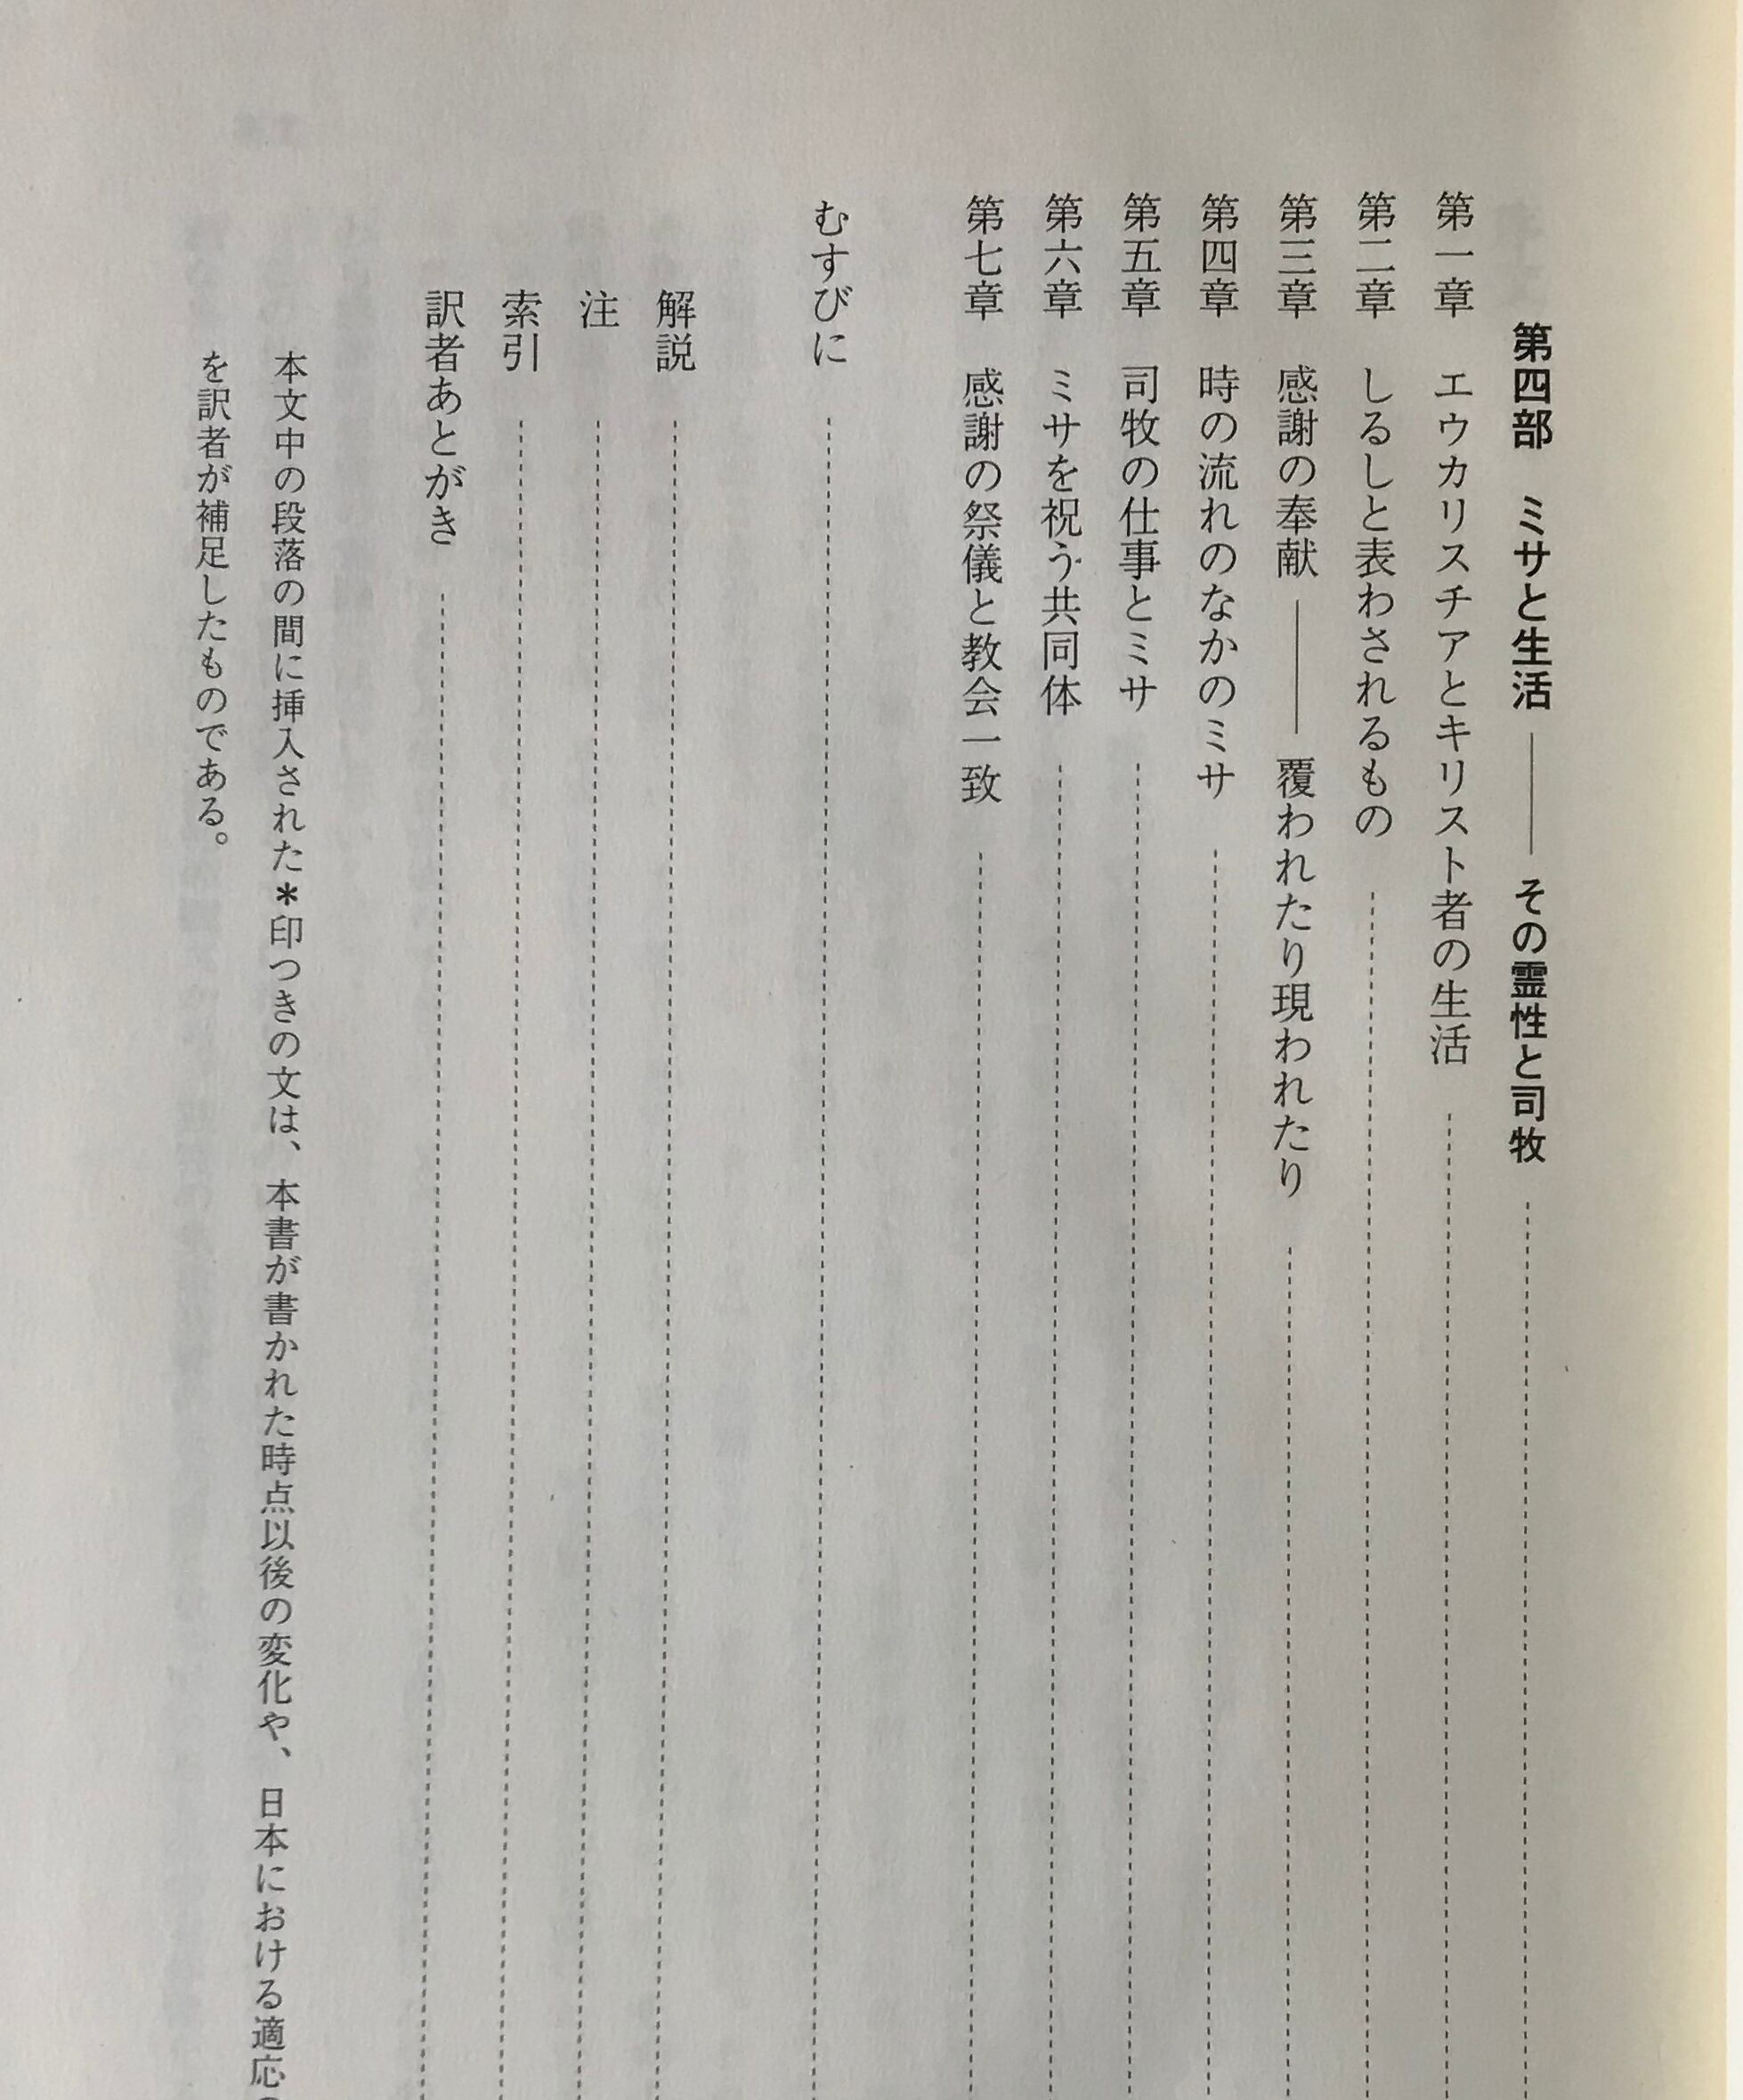 第四部　ミサと生活――その霊性と司牧
第一章　エウカリスチアとキリスト者の生活
第二章　しるしと表わされるもの
第三章　感謝の奉献――覆われたり現われたり
第四章　時の流れのなかのミサ
第五章　司牧の仕事とミサ
第六章　ミサを祝う共同体
第七章　感謝の祭儀と教会一致
むすびに
解説
注
索引
訳者あとがき
本文中の段落の間に挿入された＊印つきの文は、本書が書かれた時点以後の変化や、日本における適応
を訳者が補足したものである。